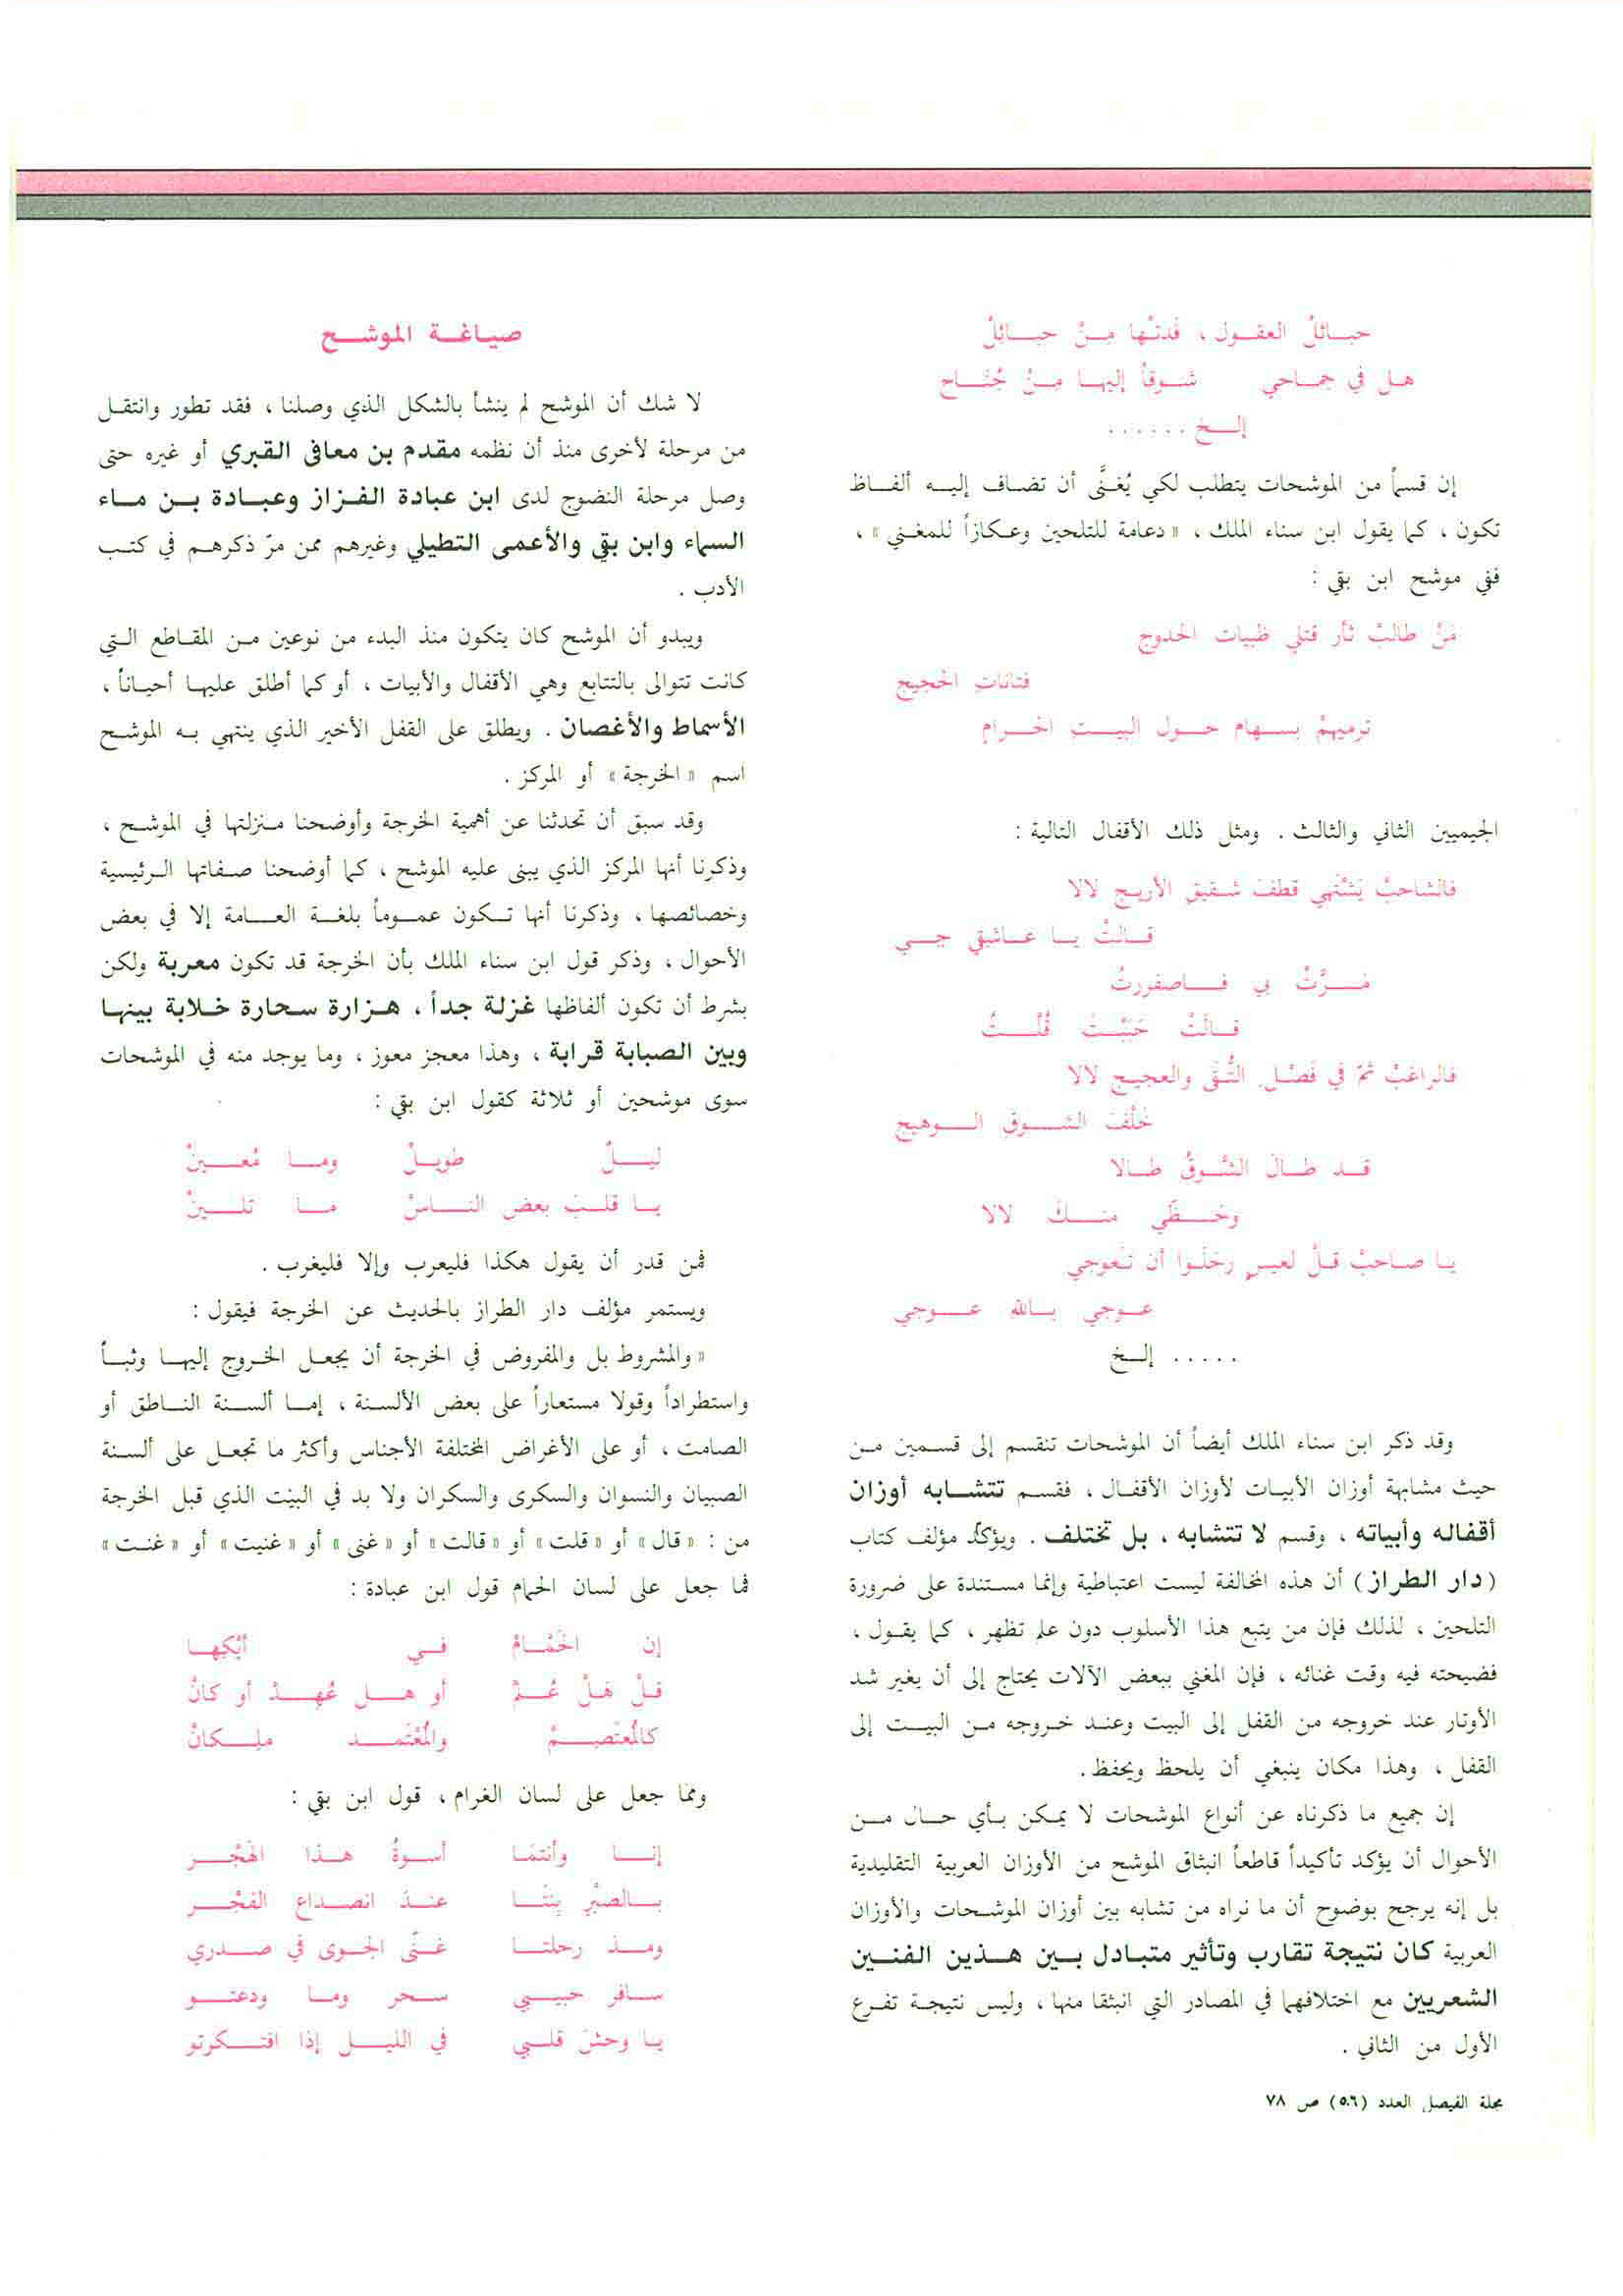 حبائلُ العقول ، فَدتْها مِنْ حبائِلْ
هل في جماحي شوقاً إليها مِنْ جُنَاح
إلخ ......
إن قسماً من الموشحات يتطلب لكي يُغَنَّى أن تضاف إليه ألفاظ
تكون ، كما يقول ابن سناء الملك ، «دعامة للتلحين وعكازاً للمغني» ،
ففي موشح ابن بقي :
مَنْ طالبْ ثأر قتلي ظبيات الحدوج
فتانات الحجيج
ترميهمْ بسهام حول البيت الحرامِ
الجيميين الثاني والثالث . ومثل ذلك الأقفال التالية :
فالشاحبْ يَشْتَهي قطفَ شقيق الأريج لالا
قالتْ يا عاشقي جي
مَرَّتْ بي فاصفورتُ
قالَتْ حَبَّبْتَ قُلْتُ
فالراغبْ ثَمّ في فَضْلِ التُّقَى والعجيج لالا
خَلْفَ الشوقِ الوهيج
قد طالَ الشَّوقُ طالا
وحَظّي منكَ لالا
يا صاحبْ قلْ لعيسٍ رحَلَوا أن تَعوجي
عوجي بالله عوجي
..... إلخ
وقد ذكر ابن سناء الملك أيضاً أن الموشحات تنقسم إلى قسمين من
حيث مشابهة أوزان الأبيات لأوزان الأقفال ، فقسم تتشابه أوزان
أقفاله وأبياته ، وقسم لا تتشابه ، بل تختلف . ويؤكد مؤلف كتاب
(دار الطراز) أن هذه المخالفة ليست اعتباطية وإنما مستندة على ضرورة
التلحين ، لذلك فإن من يتبع هذا الأسلوب دون علم تظهر ، كما يقول ،
فضيحته فيه وقت غنائه ، فإن المغني ببعض الآلات يحتاج إلى أن يغير شد
الأوتار عند خروجه من القفل إلى البيت وعند خروجه من البيت إلى
القفل ، وهذا مكان ينبغي أن يلحظ ويحفظ .
إن جميع ما ذكرناه عن أنواع الموشحات لا يمكن بأي حال من
الأحوال أن يؤكد تأكيداً قاطعاً انبثاق الموشح من الأوزان العربية التقليدية
بل إنه يرجح بوضوح أن ما نراه من تشابه بين أوزان الموشحات والأوزان
العربية كان نتيجة تقارب وتأثير متبادل بين هذين الفنين
الشعريين مع اختلافهما في المصادر التي انبثقا منها ، وليس نتيجة تفرع
الأول من الثاني .
مجلة الفيصل العدد (٥٠٦) ص ٧٨
صياغة الموشح
لا شك أن الموشح لم ينشأ بالشكل الذي وصلنا ، فقد تطور وانتقل
من مرحلة لأخرى منذ أن نظمه مقدم بن معافى القبري أو غيره حتى
وصل مرحلة النضوج لدى ابن عبادة الفزاز وعبادة بن ماء
السماء وابن بقي والأعمى التطيلي وغيرهم ممن مرّ ذكرهم في كتب
الأدب .
ويبدو أن الموشح كان يتكون منذ البدء من نوعين من المقاطع التي
كانت تتوالى بالتتابع وهي الأقفال والأبيات ، أو كما أطلق عليها أحياناً ،
الأسماط والأغصان . ويطلق على القفل الأخير الذي ينتهي به الموشح
اسم «الخرجة» أو المركز .
وقد سبق أن تحدثنا عن أهمية الخرجة وأوضحنا منزلتها في الموشح ،
وذكرنا أنها المركز الذي يبنى عليه الموشح ، كما أوضحنا صفاتها الرئيسية
وخصائصها ، وذكرنا أنها تكون عموماً بلغة العامة إلا في بعض
الأحوال ، وذكر قول ابن سناء الملك بأن الخرجة قد تكون معربة ولكن
بشرط أن تكون ألفاظها غزلة جداً ، هزارة سحارة خلابة بينها
وبين الصبابة قرابة ، وهذا معجز معوز ، وما يوجد منه في الموشحات
سوى موشحين أو ثلاثة كقول ابن بقي :
ليلٌ طويلْ وما مُعينْ
يا قلبَ بعض الناسْ ما تلينْ
فمن قدر أن يقول هكذا فليعرب وإلا فليغرب .
ويستمر مؤلف دار الطراز بالحديث عن الخرجة فيقول :
«والمشروط بل والمفروض في الخرجة أن يجعل الخروج إليها وثباً
واستطراداً وقولا مستعاراً على بعض الألسنة ، إما ألسنة الناطق أو
الصامت ، أو على الأغراض المختلفة الأجناس وأكثر ما تجعل على ألسنة
الصبيان والنسوان والسكرى والسكران ولا بد في البيت الذي قبل الخرجة
من : «قال» أو «قلت» أو «قالت» أو «غنى» أو «غنيت» أو «غنت»
فما جعل على لسان الحمام قول ابن عبادة :
إن الحَمْامْ في أيْكِها
قلْ هَلْ عُمْ أو هل عُهِدْ أو كانْ
كالمُعتَصِمْ والمُعْتَمد ملِكانْ
ومما جعل على لسان الغرام ، قول ابن بقي :
إنا وأنتمَا أسوةُ هذا الهَجْر
بالصبْرِ بِنْتَا عندَ انصداع الفجْر
ومذ رحلتا غنَّى الجوى في صدري
سافر حبيبي سحر وما ودعتو
يا وحشَ قلبي في الليل إذا افتكرتو